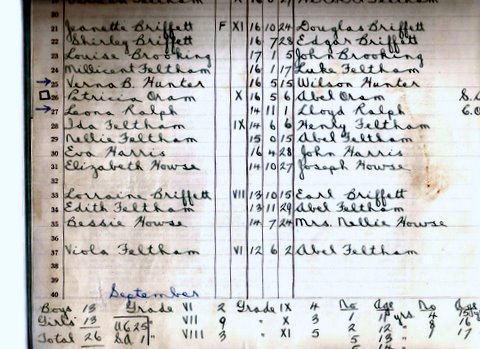 20
21 Jeanette Briffett F XI 16 10 24 Douglas Briffett
22 Shirley Briffett 16 7 28 Edgar Briffett
23 Louise Brooking 17 1 5 John Brooking
24 Millicent Feltham 16 1 17 Luke Feltham
25 Verna B. Hunter 16 5 15 Wilson Hunter
26 Patricia Oram X 16 5 6 Abel Oram
27 Leona Ralph 14 11 1 Lloyd Ralph
28 Ida Feltham IX 14 6 6 Henry Feltham
29 Nellie Feltham 15 0 15 Abel Feltham
30 Eva Harris 16 4 28 John Harris
31 Elizabeth Howse 14 10 27 Joseph Howse
32
33 Lorraine Briffett VII 13 10 15 Earl Briffett
34 Edith Feltham 13 11 29 Abel Feltham
35 Bessie Howse 14 7 24 Mrs. Nellie Howse
36
37 Viola Feltham VI 12 6 2 Abel Feltham
38
39
40
September
Boys 13 Grade VI 2 Grade IX 4 No Age No Age
Girls 13 VII 9 " X 3 yrs. 4 15
Total 26 VIII 3 " XI 5 2 12 " 8 16
5 13 " 1 17
5 14 "